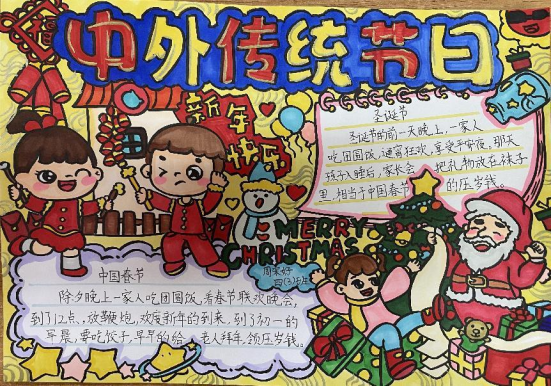 福
中外传统节日
新年
快乐
圣诞节
圣诞节的前一天晚上,一家人
吃团圆饭,通宵狂欢,享受平安夜,那天
孩子入睡后,家长会把礼物放在袜子
里,相当于中国春节的压岁钱。
MERRY
CHRISTMAS
四(3)班
中国春节
除夕晚上一家人吃团圆饭,看春节联欢晚会,
到了12点、放鞭炮,欢度新年的到来,到了初一的
早晨,要吃饺子,早早的给老人拜年,领压岁钱。